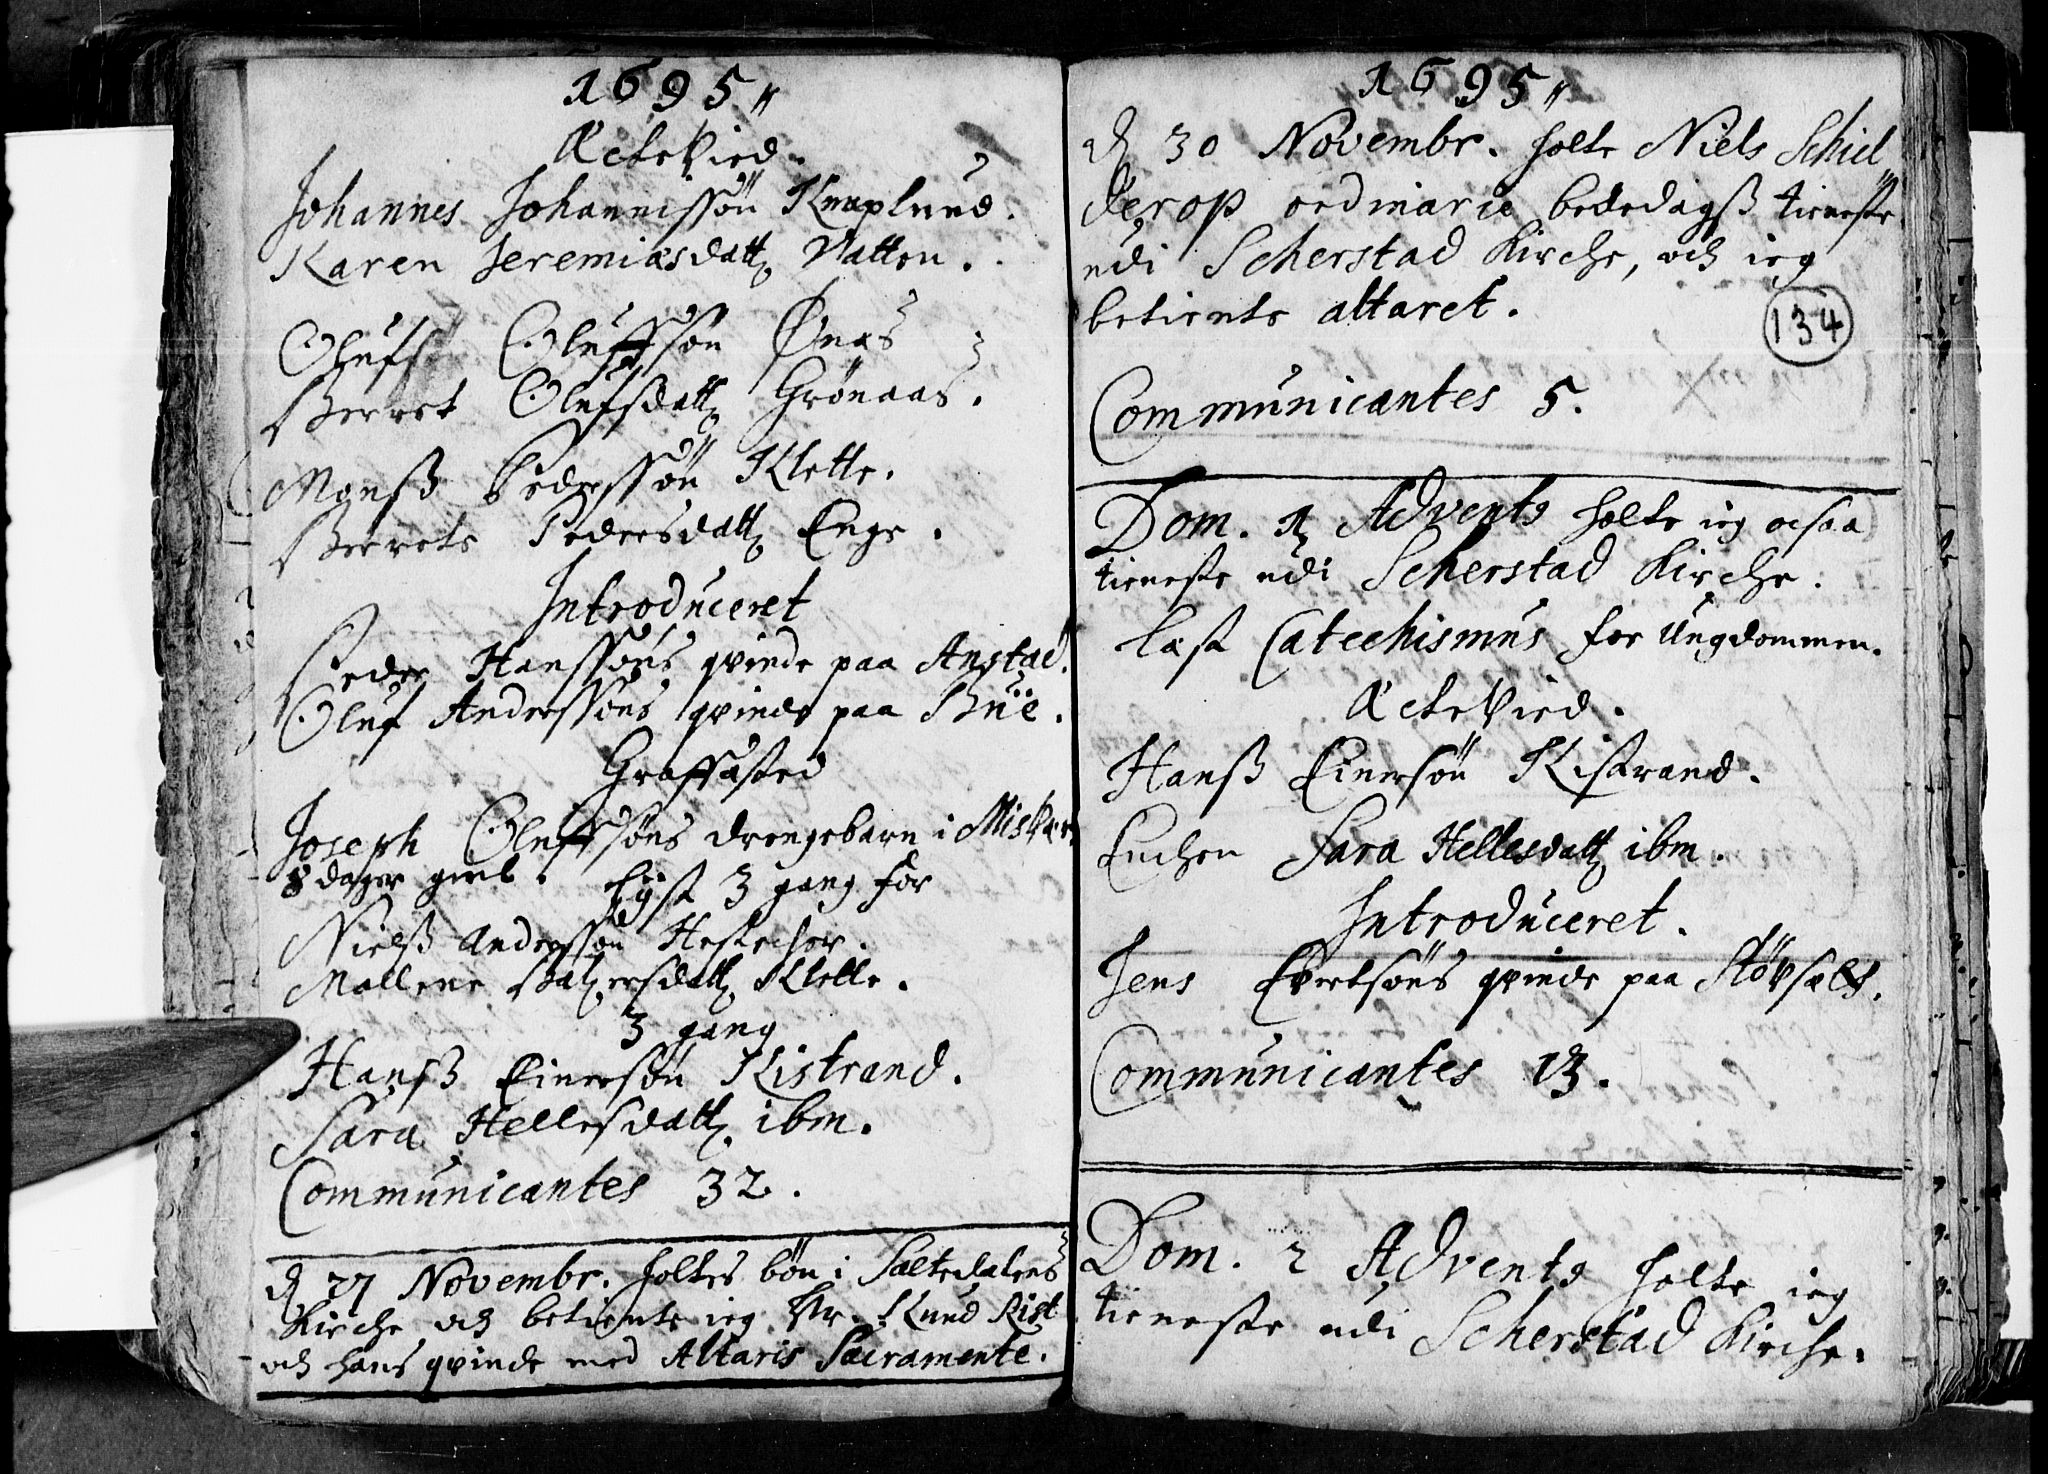 1695
ÆcteVied.
Johannes Johannissøn Knaplund.
Karen Jeremiæsdatt Vatten.
Oluf Oluffsøn Ønes
Berret Olufsdatt Grønaas.
Monsß Pederssøn Klette.
Berrets Pedersdatt Enge.
Introduceret
Peder Hanssøns qvinde paa Anstad.
Oluf Anderssøns qvinde paa Bue.
Graffasted
Joseph Oluffsøns drengebarn i Misvær
8 dager gml. Lyst 3 gang for
Nielß Anderssøn Hestechor.
Mallene Baltzersdatt Klette.
3 gang
Hansß Einersøn Kistrand.
Sara Hellesdatt ibm.
Communicantes 32.
d 27 Novembr. holtes bøn i Saltedalens
Kirche och betiente ieg Hr. Knud Rist
och hans qvinde med Altaris Sacramente.
1695
d 30 Novembr. holte Niels Schiel
derop ordinarie bededagsß tieneste
udi Scherstad Kirche, och ieg
betiente altaret.
134
Communicantes 5.
Dom. 1 Advents holte ieg ocsaa
tieneste udi Scherstad Kirche.
læst Catechismus for Ungdommen.
ÆcteVied.
Hansß Einersøn Kistrand.
Enchen Sara Hellesdatt ibm.
Introduceret.
Jens Evertsøns qvinde paa Støvsæt.
Communicantes 13.
Dom. 2 Advents holte ieg
tieneste udi Scherstad Kirche.